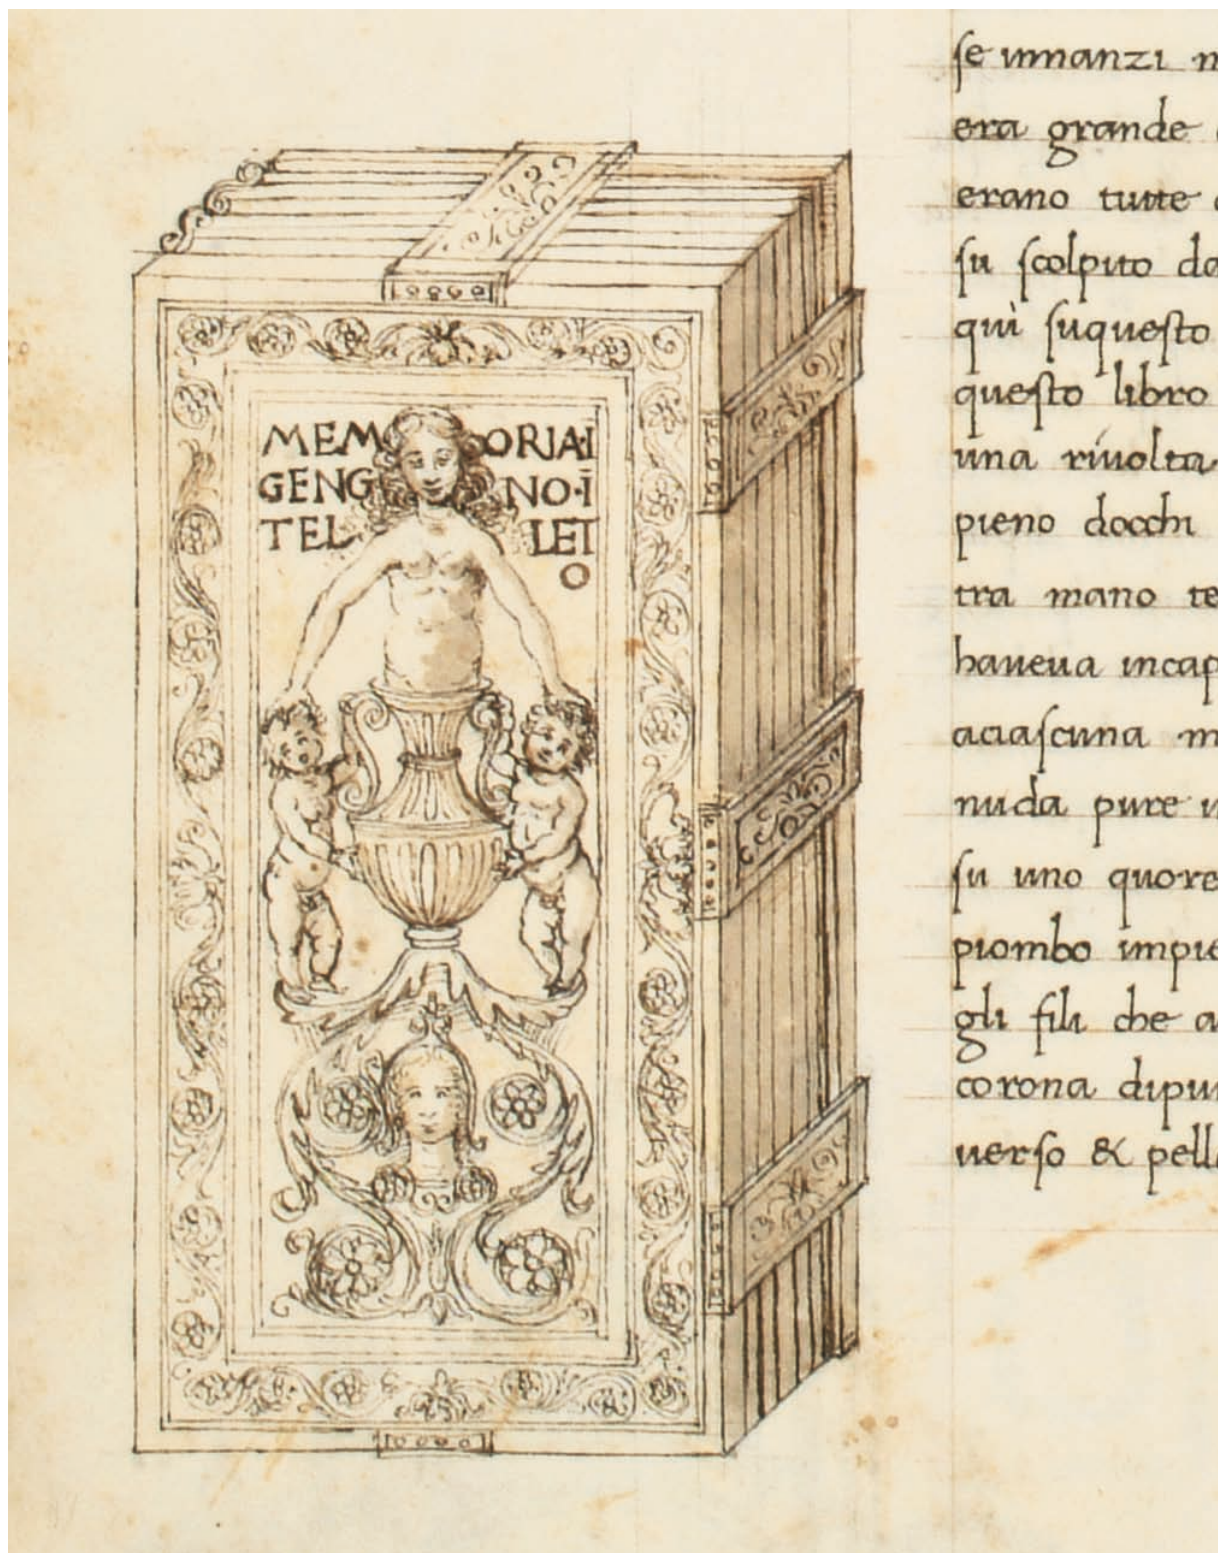 MEMORIA·I
GENGNO·Ī
TELLET
O
se innanzi
era grande
erano tutte
su scolpito da
quì suquesto
questo libro
una riuolta
pieno docchi
tra mano te
haueua incap
aciascuna m
nuda pure
su uno quore
piombo impie
gli fili che a
corona dipu
uerso & pell